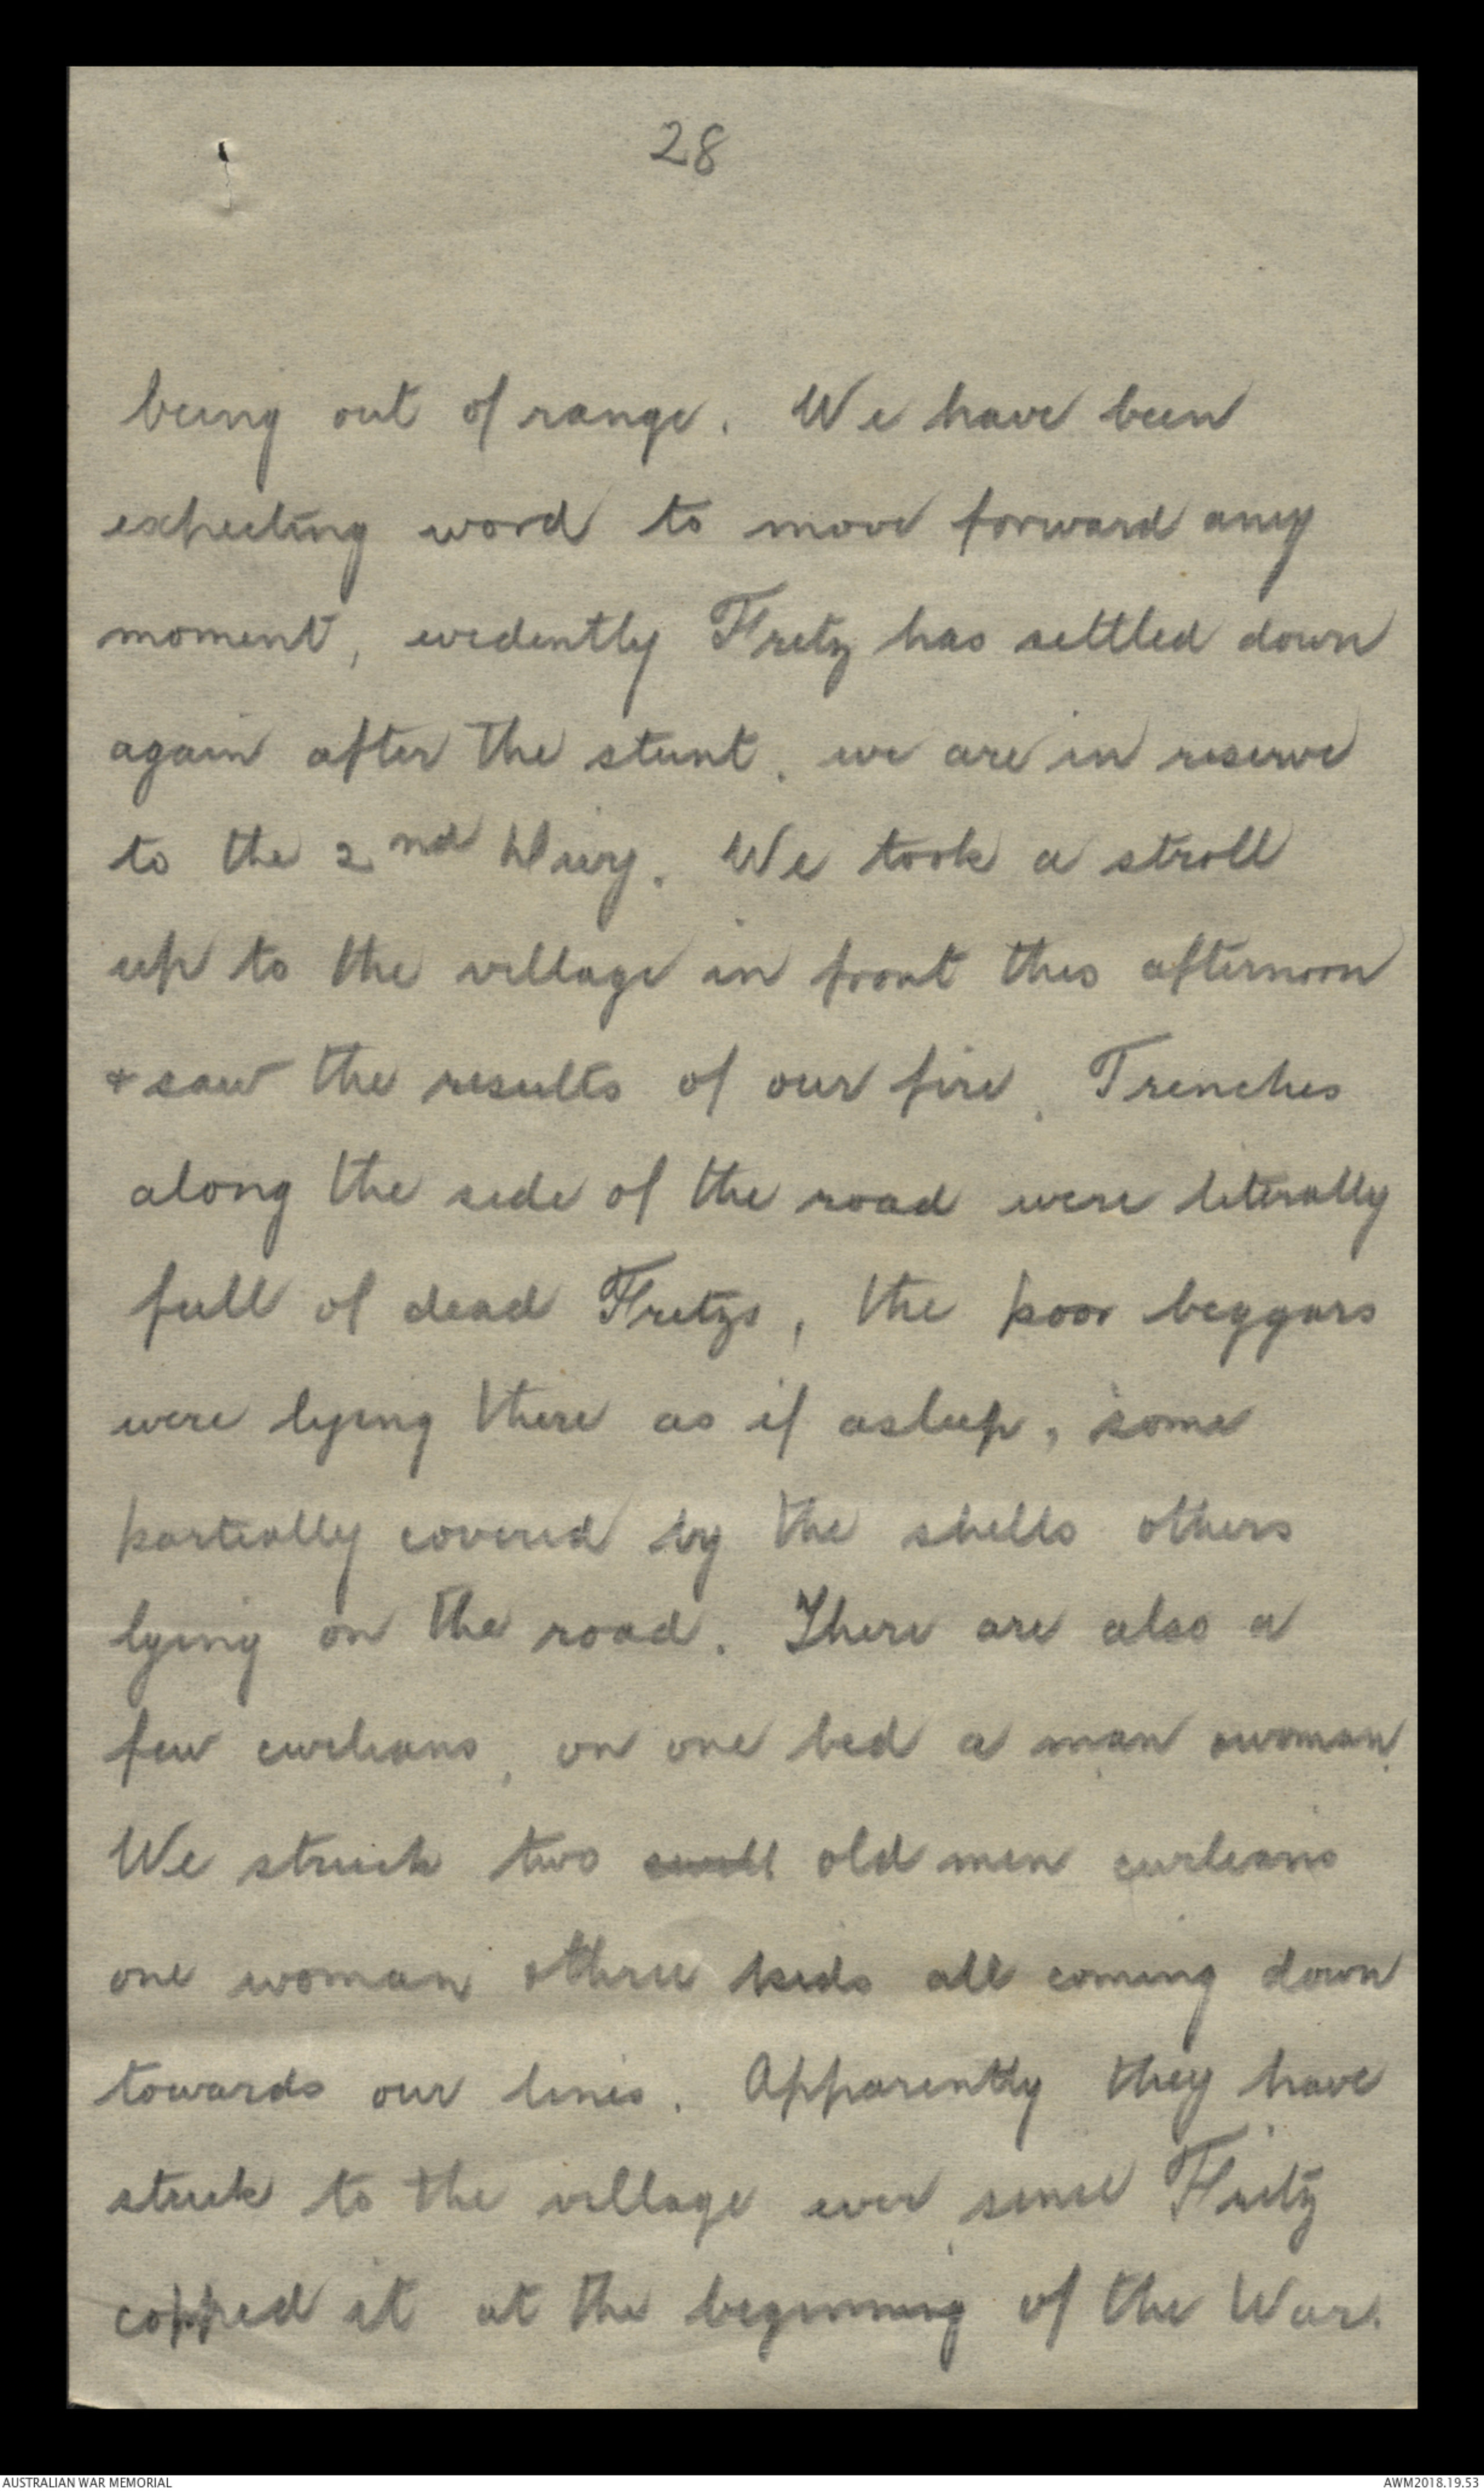 28
being out of range. We have been
expecting word to move forward any
moment, evidently Fritz has settled down
again after the stunt. we are in reserve
to the 2nd Divy. We took a stroll
up to the village in front this afternoon
& saw the results of our fire. Trenches
along the side of the road were literally
full of dead Fritzs, the poor beggars
were lying there as if asleep, some
partially covered by the shells others
lying on the road. There are also a
few civilians, on one bed a man & woman.
We struck two old men civilians
one woman & three kids all coming down
towards our lines. Apparently they have
stuck to the village ever since Fritz
copped it at the beginning of the War.
AUSTRALIAN WAR MEMORIAL
AWM2018.19.53